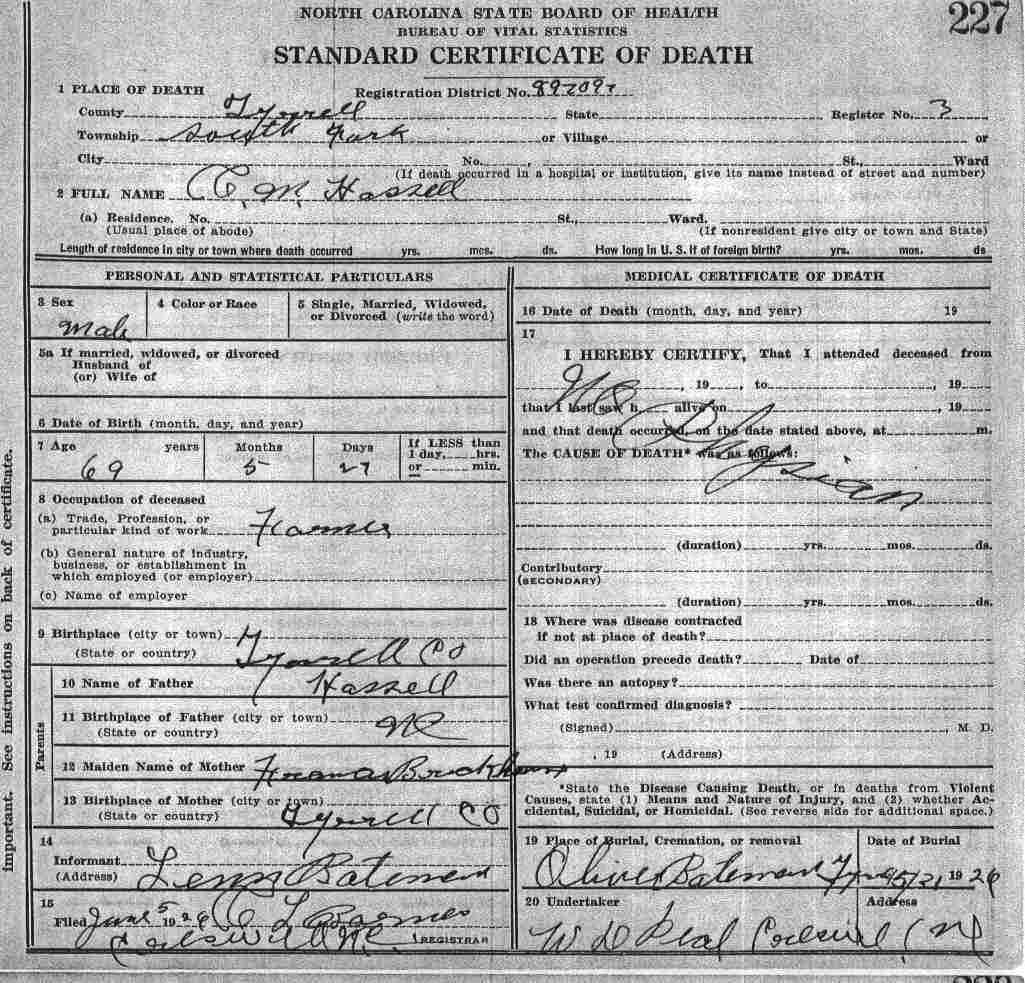 227
NORTH CAROLINA STATE BOARD OF HEALTH
BUREAU OF VITAL STATISTICS
STANDARD CERTIFICATE OF DEATH
1 PLACE OF DEATH Registration District No.
County Tyrrell State Register No. 3
Township South Fork or Village or
City No. , St., Ward
(If death occurred in a hospital or institution, give its name instead of street and number)
2 FULL NAME C. M. Hassell
(a) Residence. No. St., Ward.
(Usual place of abode) (If nonresident give city or town and State)
Length of residence in city or town where death occurred yrs. mos. ds. How long in U. S. if of foreign birth? yrs. mos. ds
PERSONAL AND STATISTICAL PARTICULARS
3 Sex 4 Color or Race 5 Single, Married, Widowed,
or Divorced (write the word)
Male
5a If married, widowed, or divorced
Husband of
(or) Wife of
6 Date of Birth (month, day, and year)
7 Age years Months Days If LESS than
1 day, hrs.
or min.
69 5 27
8 Occupation of deceased
(a) Trade, Profession, or
particular kind of work Farmer
(b) General nature of industry,
business, or establishment in
which employed (or employer)
(c) Name of employer
9 Birthplace (city or town)
(State or country) Tyrrell Co
Parents
10 Name of Father Hassell
11 Birthplace of Father (city or town)
(State or country) NC
12 Maiden Name of Mother
13 Birthplace of Mother (city or town)
(State or country) Tyrrell Co
14
Informant
(Address) Bateman
15
Filed June 5 1926 C L Barnes
REGISTRAR
important. See instructions on back of certificate.
MEDICAL CERTIFICATE OF DEATH
16 Date of Death (month, day, and year) 19
17
I HEREBY CERTIFY, That I attended deceased from
, 19 , to , 19
that I last saw h alive on , 19
and that death occurred, on the date stated above, at m.
The CAUSE OF DEATH* was as follows:
No Physician
(duration) yrs. mos. ds.
Contributory
(SECONDARY)
(duration) yrs. mos. ds.
18 Where was disease contracted
if not at place of death?
Did an operation precede death? Date of
Was there an autopsy?
What test confirmed diagnosis?
(Signed) , M. D.
, 19 (Address)
*State the Disease Causing Death, or in deaths from Violent
Causes, state (1) Means and Nature of Injury, and (2) whether Ac-
cidental, Suicidal, or Homicidal. (See reverse side for additional space.)
19 Place of Burial, Cremation, or removal Date of Burial
Oliver Bateman 5/21 1926
20 Undertaker Address
W D Peal